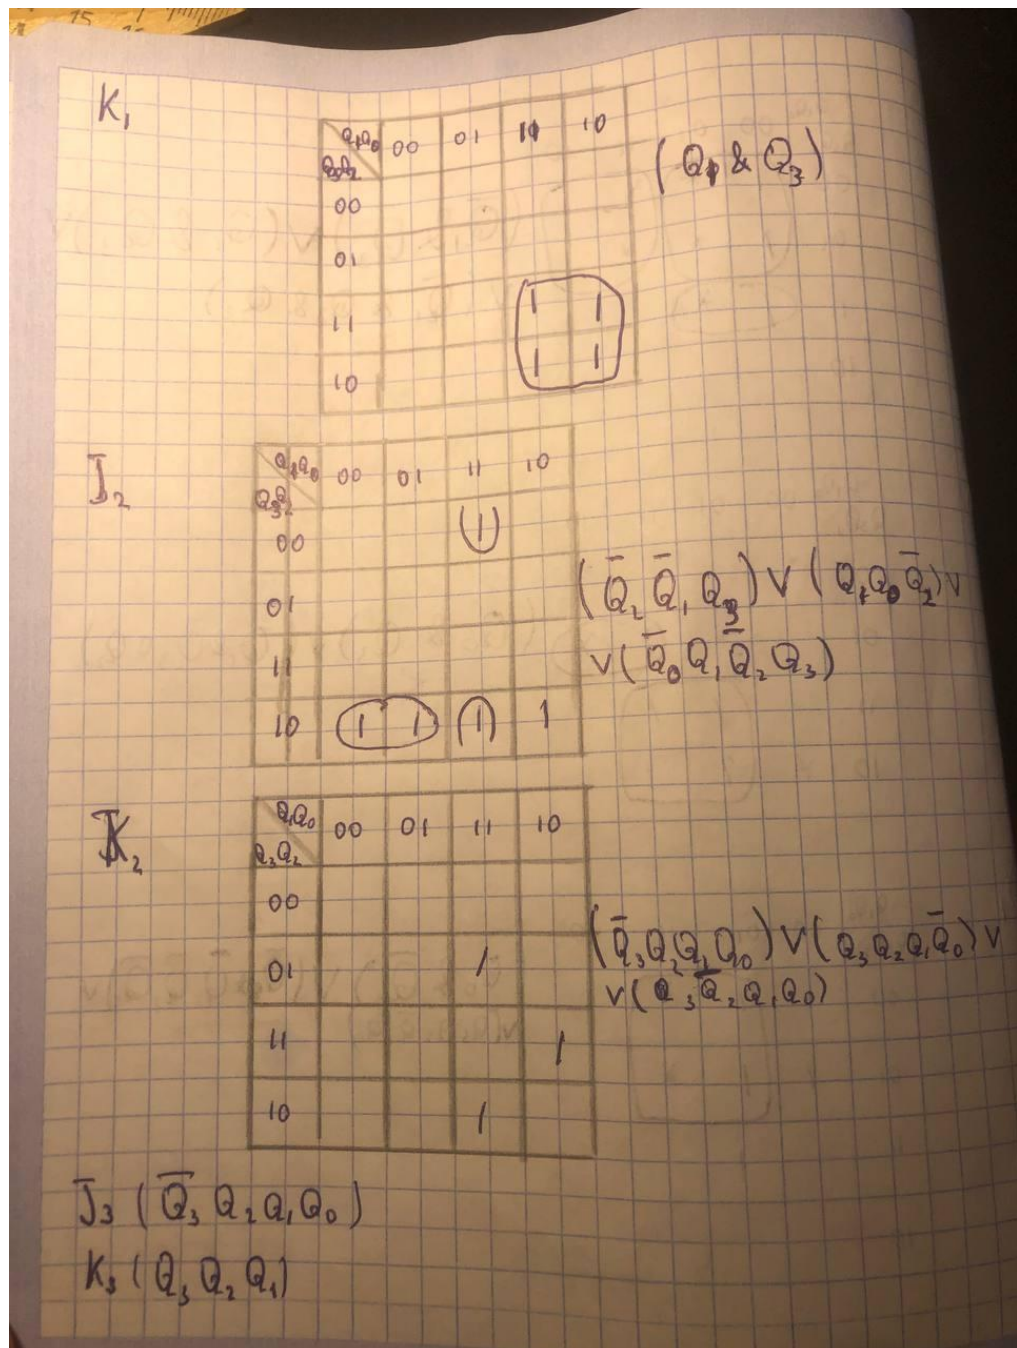 15
K₁
Q₁Q₀ 00 01 11 10
Q₃Q₂
00
01
11 1 1
10 1 1
(Q₁ & Q₃)
J₂
Q₁Q₀ 00 01 11 10
Q₃Q₂
00 1
01
11
10 1 1 1 1
(Q̄₂ Q̄₁ Q₃) V (Q₁Q₀Q̄₂) V
V (Q̄₀ Q₁ Q̄₂ Q₃)
K₂
Q₁Q₀ 00 01 11 10
Q₃Q₂
00
01 1
11 1
10 1
(Q̄₃Q₂Q₁Q₀) V (Q₃Q₂Q₁Q̄₀) V
V (Q₃Q̄₂Q₁Q₀)
J₃ (Q̄₃ Q₂ Q₁ Q₀)
K₃ (Q₃ Q₂ Q₁)